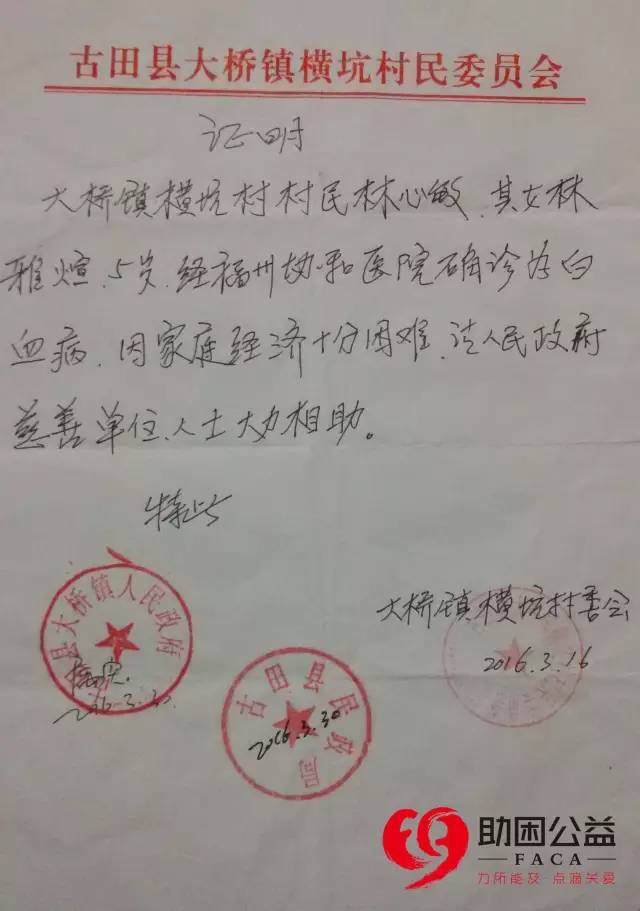 古田县大桥镇横坑村民委员会
证明
大桥镇横坑村村民林心敏、其女林
雅煊、5岁、经福州协和医院确诊为白
血病、因家庭经济十分困难、请人民政府
慈善单位、人士大力相助。
特此
大桥镇横坑村委会
2016.3.16
县大桥镇人民政府
2016.3.30
古田县民政局
2016.3.30
助困公益
FACA
力所能及·点滴关爱